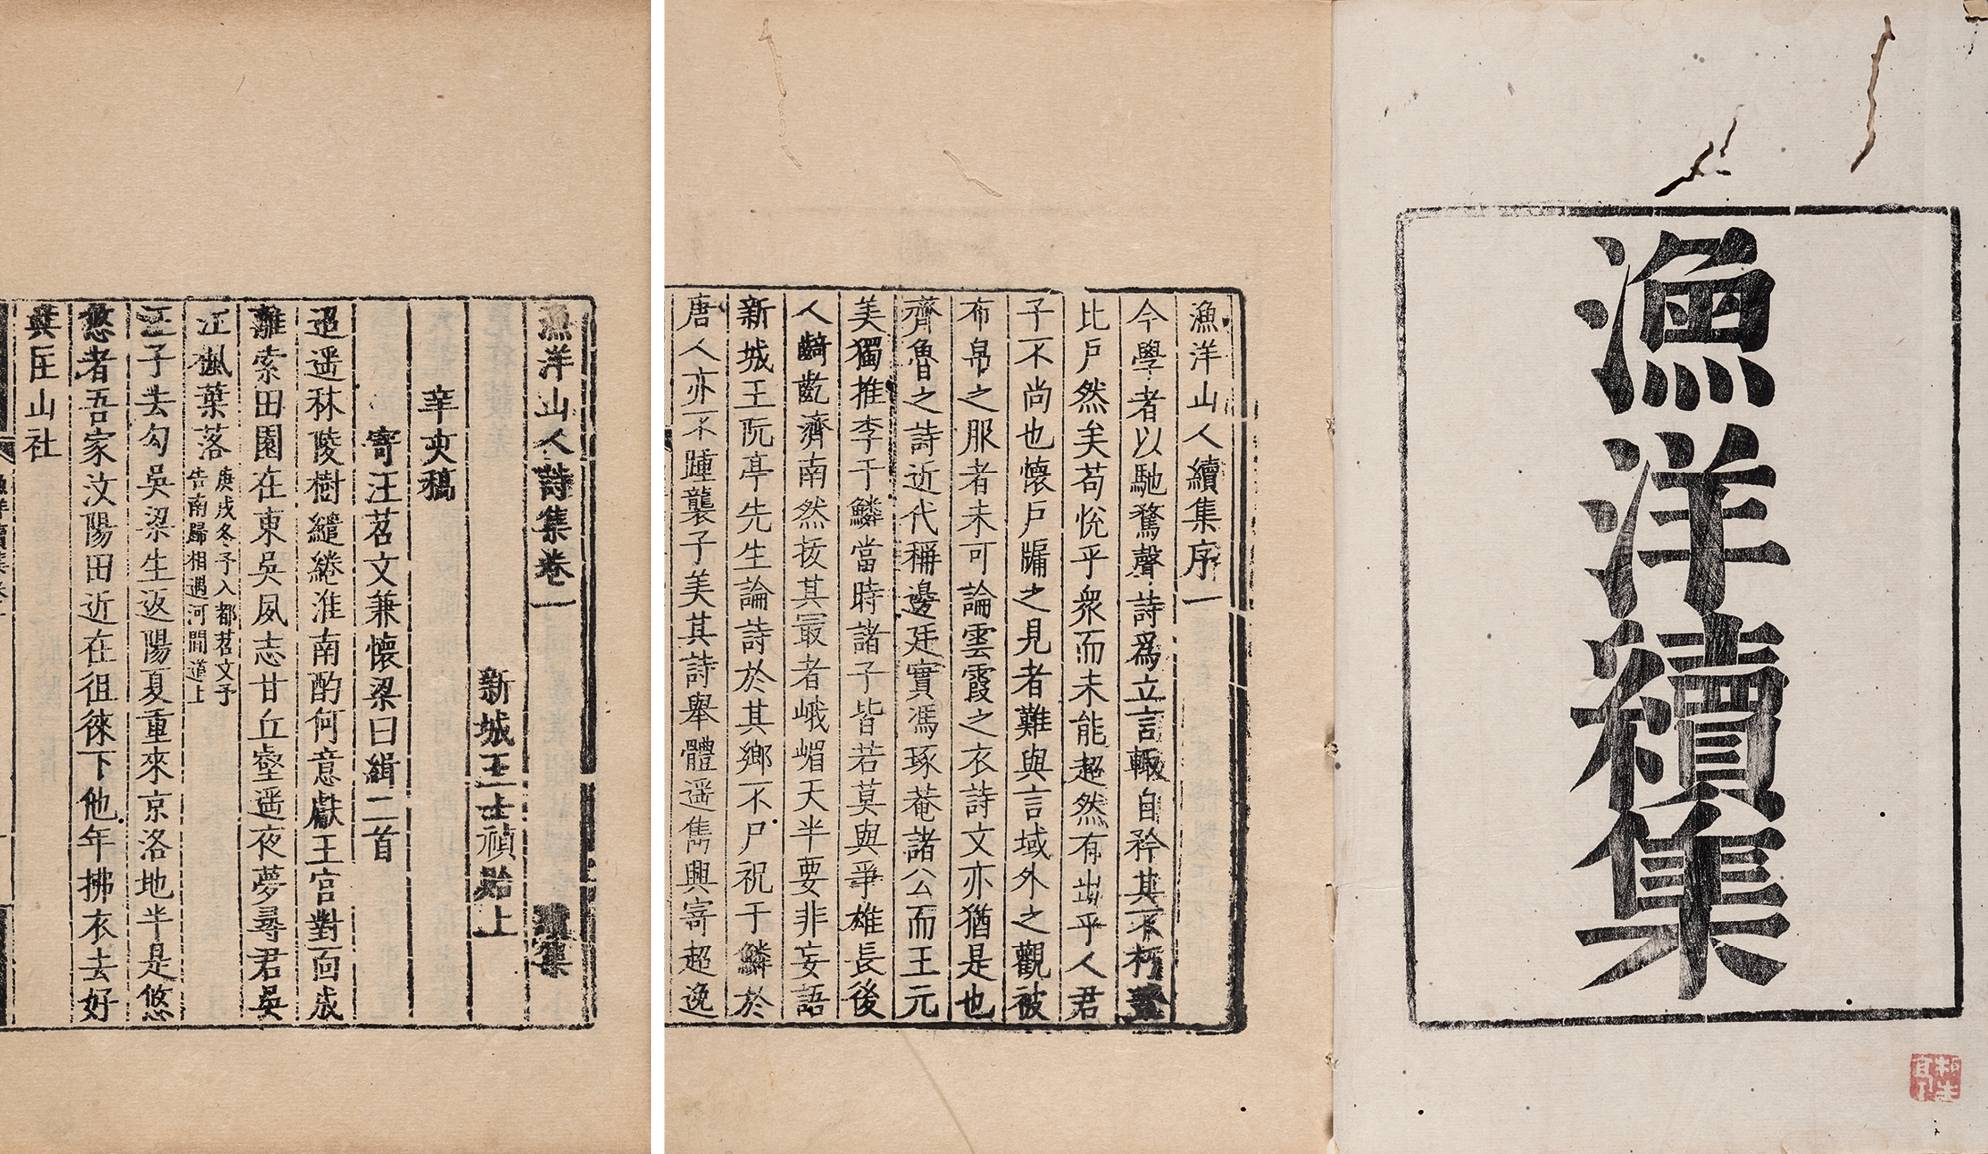 漁洋續集
漁洋山人續集序一
今學者以馳騖聲詩爲立言輙自矜其不朽葢
比戶然矣苟悅乎衆而未能超然有出乎人君
子不尚也懷戶牖之見者難與言域外之觀被
布帛之服者未可論雲霞之衣詩文亦猶是也
齊魯之詩近代稱邊廷實馮琢菴諸公而王元
美獨推李于鱗當時諸子皆若莫與爭雄長後
人齮齕濟南然按其最者峨嵋天半要非妄語
新城王阮亭先生論詩於其鄉不尸祝于鱗於
唐人亦不踵襲子美其詩舉體遥雋興寄超逸
漁洋山人詩集卷一 續集
新城王士禛貽上
辛亥稿
寄汪苕文兼懷梁曰緝二首
迢遥秣陵樹繾綣淮南酌何意獻王宮對面成
離索田園在東吳夙志甘丘壑遥夜夢尋君吳
江楓葉落庚戌冬予入都苕文予告南歸相遇河間道上
汪子去勾吳梁生返陽夏重來京洛地半是悠
悠者吾家汶陽田近在徂徠下他年拂衣去好
與匡山社